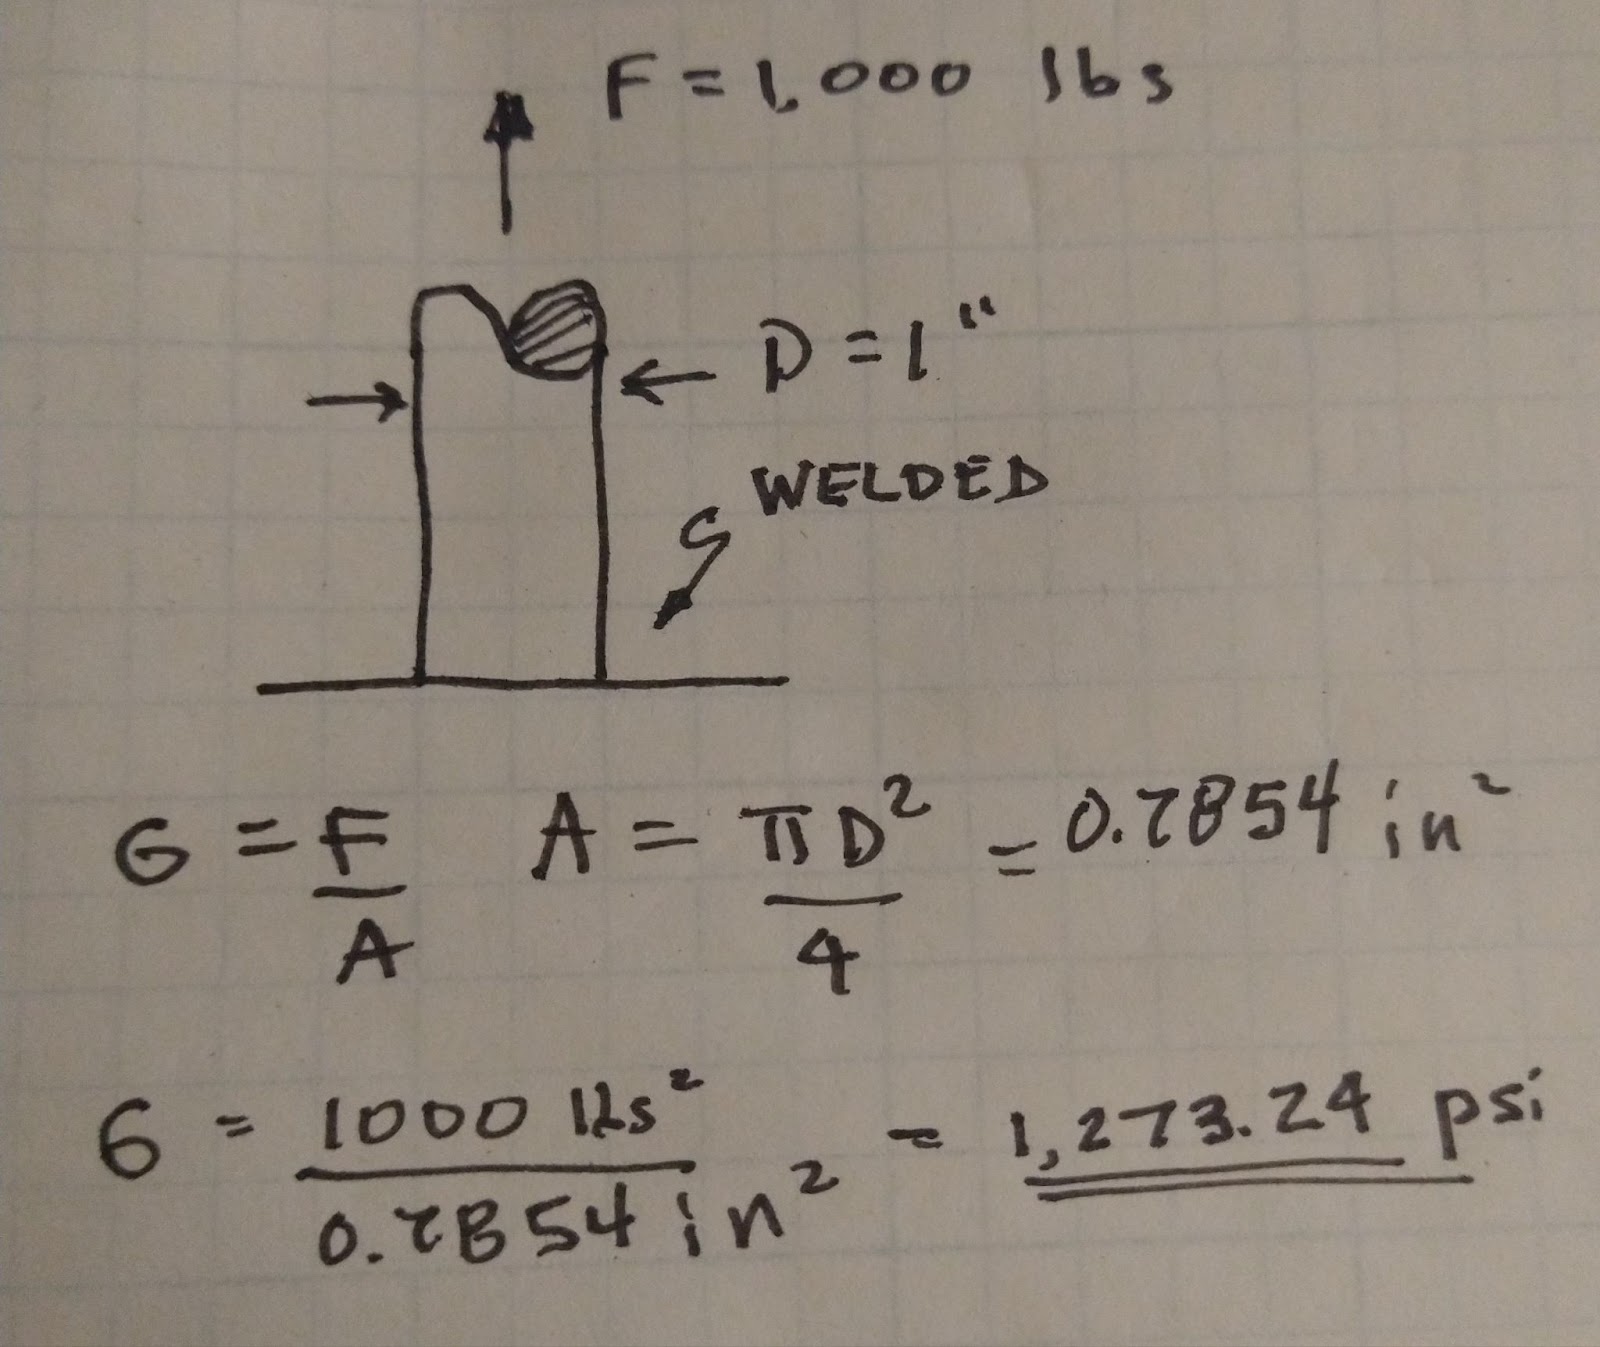 F = 1,000 lbs
D = 1"
WELDED
σ = F/A A = πD²/4 = 0.7854 in²
σ = 1000 lbs²/0.7854 in² = 1,273.24 psi